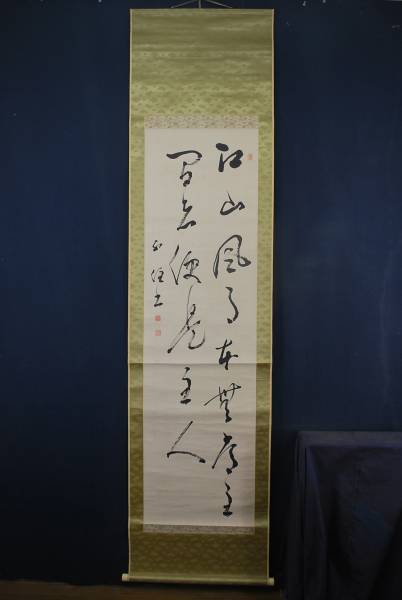 江山風月本無常主
閑者便是主人